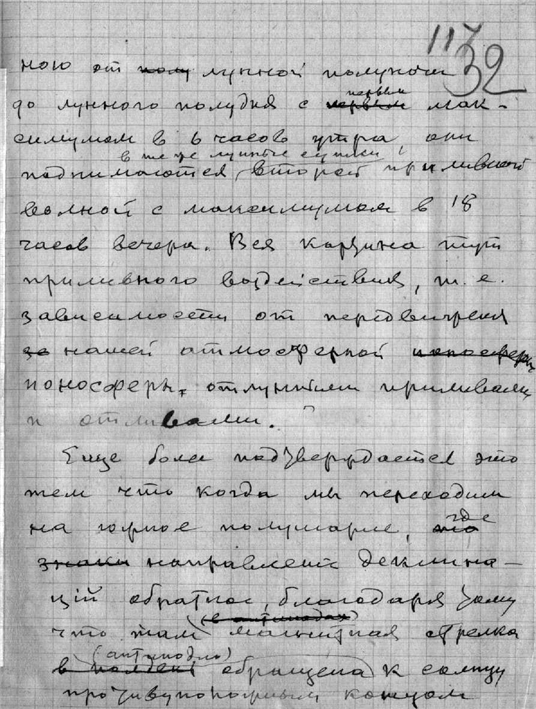 117
32
ною от полу лунной полуночи
до лунного полудня с первым первым мак-
симумом в 6 часов утра они
в те же лунные сутки
поднимаются, второй приливной
волной с максимумом в 18
часов вечера. Вся картина тут
приливного воздействия, т.е.
зависимости от передвижения
за нашей атмосферной ионосферы
ионосферы, от лунными приливами
и отливами.
Еще более подтверждается это
тем что когда мы переходим
на южное полушарие, где
знаки направлений деклина-
ций обратное, благодаря тому
(в антиподах)
что там магнитная стрелка
(антиподно)
обращена к солнцу
противуположным концом